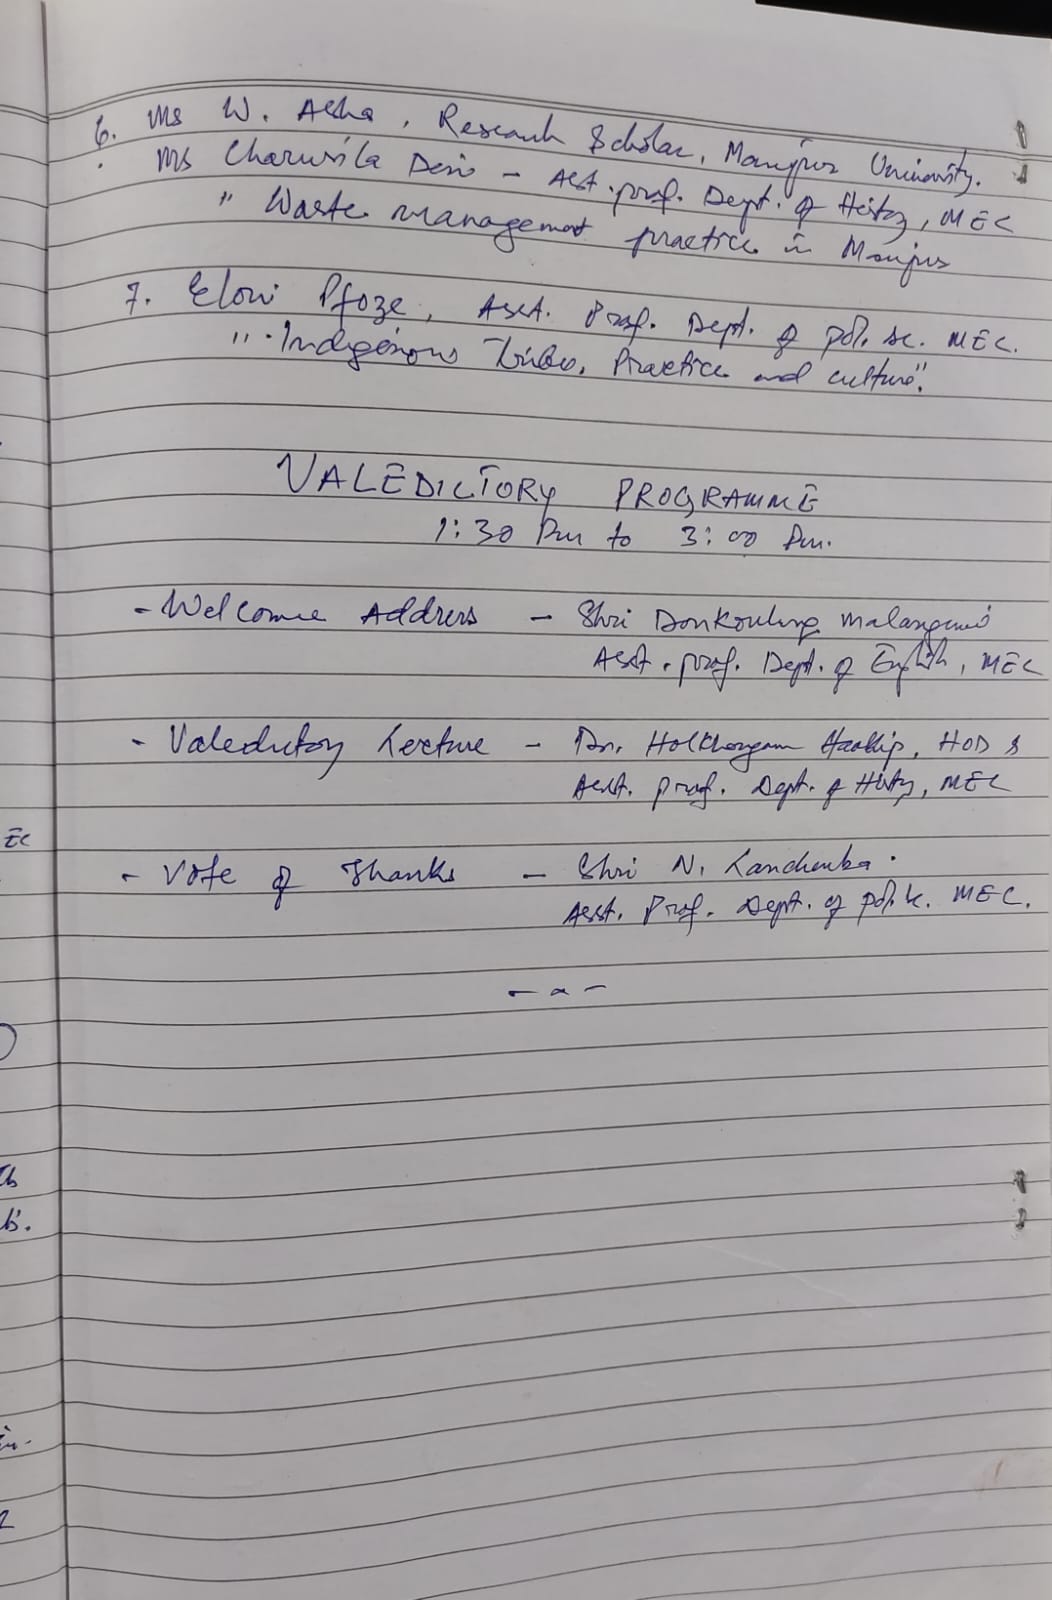 6. Ms W. Asha, Research Scholar, Manipur University.
Ms Charusila Devi - Asst. prof. Dept. of History, MEC
" Waste management practice in Manipur
7. Eloni Pfoze, Asst. Prof. Dept. of pol. sc. MEC.
"Indigenous Tribes, Practice and culture".
VALEDICTORY PROGRAMME
1:30 Pm to 3:00 Pm.
- Welcome Address - Shri Donkouling Malangmei
Asst. prof. Dept. of English, MEC
- Valedictory Lecture - Dr. Holkhongam Haokip, HOD &
Asst. prof. Dept. of History, MEC
- Vote of Thanks - Shri N. Lanchenba.
Asst. Prof. Dept. of pol. sc. MEC.